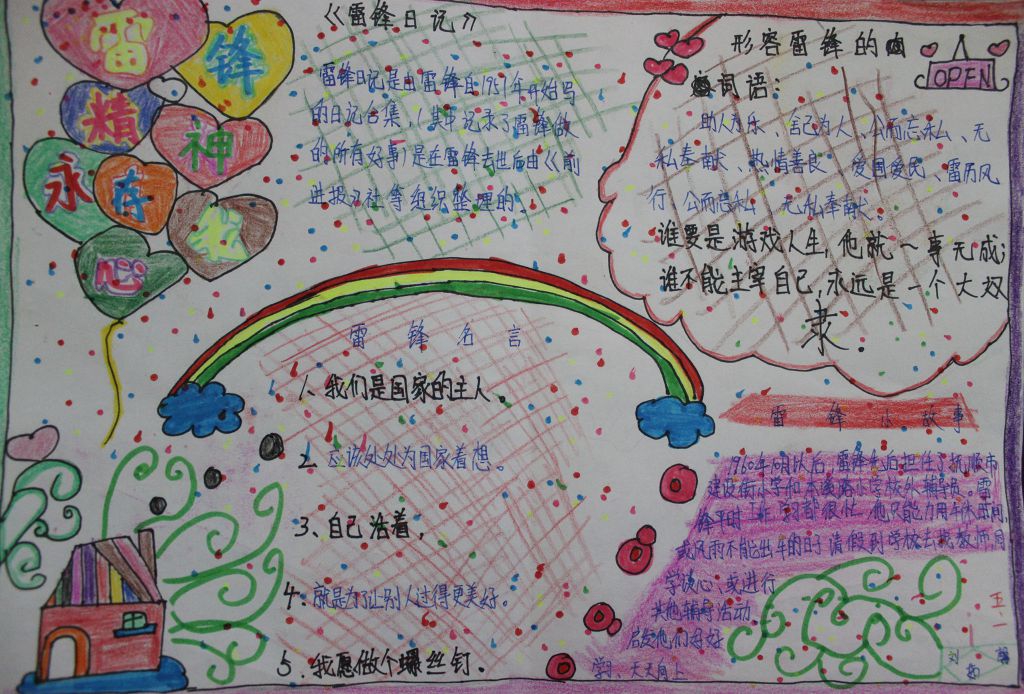 雷锋
精神
永存
心
《雷锋日记》
雷锋日记是由雷锋自1957年开始写
的日记合集,(其中记录了雷锋做
的所有好事)是在雷锋去世后由《前
进报》社等组织整理的。
形容雷锋的
词语:
OPEN
助人为乐、舍己为人、公而忘私、无
私奉献、热情善良、爱国爱民、雷厉风
行、公而忘私 无私奉献、
谁要是游戏人生,他就一事无成;
谁不能主宰自己,永远是一个大奴
隶.
雷锋名言
1、我们是国家的主人。
2、应该处处为国家着想。
3、自己活着,
4、就是为了让别人过得更美好。
5、我愿做个螺丝钉.
雷锋小故事
1960年10月以后,雷锋先后担任了抚顺市
建设街小学和本溪路小学校外辅导员。雷
锋平时工作、学习都很忙,他只能力用午休时间,
或风雨不能出车的日子请假到学校去找教师同
学谈心、或进行
其他辅导活动,
启发他们好好
学习、天天向上
五
一
刘